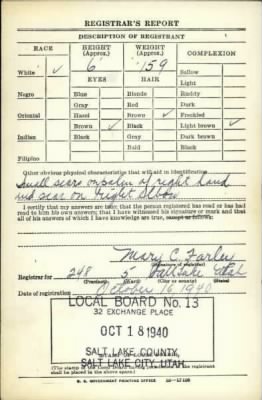 REGISTRAR'S REPORT
DESCRIPTION OF REGISTRANT
RACE HEIGHT (Approx.) WEIGHT (Approx.) COMPLEXION
White ✓ 6' 159 Sallow
EYES HAIR Light
Negro Blue Blonde Ruddy
Gray Red Dark
Oriental Hazel Brown ✓ Freckled
Brown ✓ Black Light brown ✓
Indian Black Gray Dark brown
Bald Black
Filipino
Other obvious physical characteristics that will aid in identification
Small scars on palm of right hand
and scar on right Elbow
I certify that my answers are true; that the person registered has read or has had
read to him his own answers; that I have witnessed his signature or mark and that
all of his answers of which I have knowledge are true, except as follows:
Mary C. Farley
(Signature of registrar)
Registrar for 248 5 Salt Lake Utah
(Precinct) (Ward) (City or county) (State)
Date of registration October 16, 1940
LOCAL BOARD No. 13
32 EXCHANGE PLACE
OCT 18 1940
SALT LAKE COUNTY,
SALT LAKE CITY, UTAH
(The stamp of the registrant
shall be placed in the above space.)
U. S. GOVERNMENT PRINTING OFFICE 16—17105